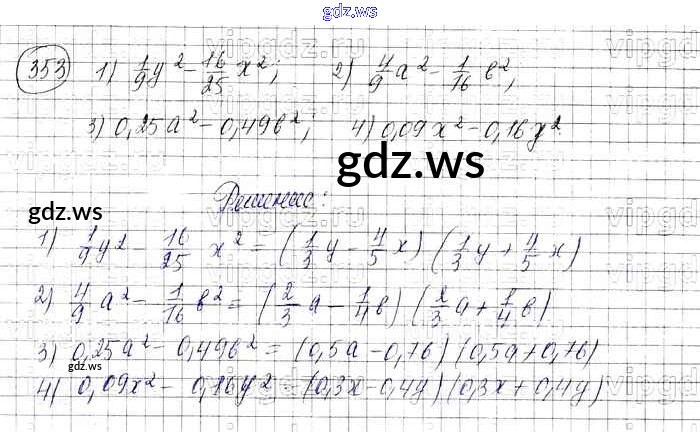 gdz.ws
353 1) 1/9 y² - 16/25 x²; 2) 4/9 a² - 1/16 b²;
3) 0,25a² - 0,49b²; 4) 0,09x² - 0,16y²
gdz.ws
gdz.ws
Решение:
1) 1/9 y² - 16/25 x² = (1/3 y - 4/5 x) (1/3 y + 4/5 x)
2) 4/9 a² - 1/16 b² = (2/3 a - 1/4 b) (2/3 a + 1/4 b)
3) 0,25a² - 0,49b² = (0,5a - 0,7b) (0,5a + 0,7b)
4) 0,09x² - 0,16y² = (0,3x - 0,4y) (0,3x + 0,4y)
gdz.ws
gdz.ws